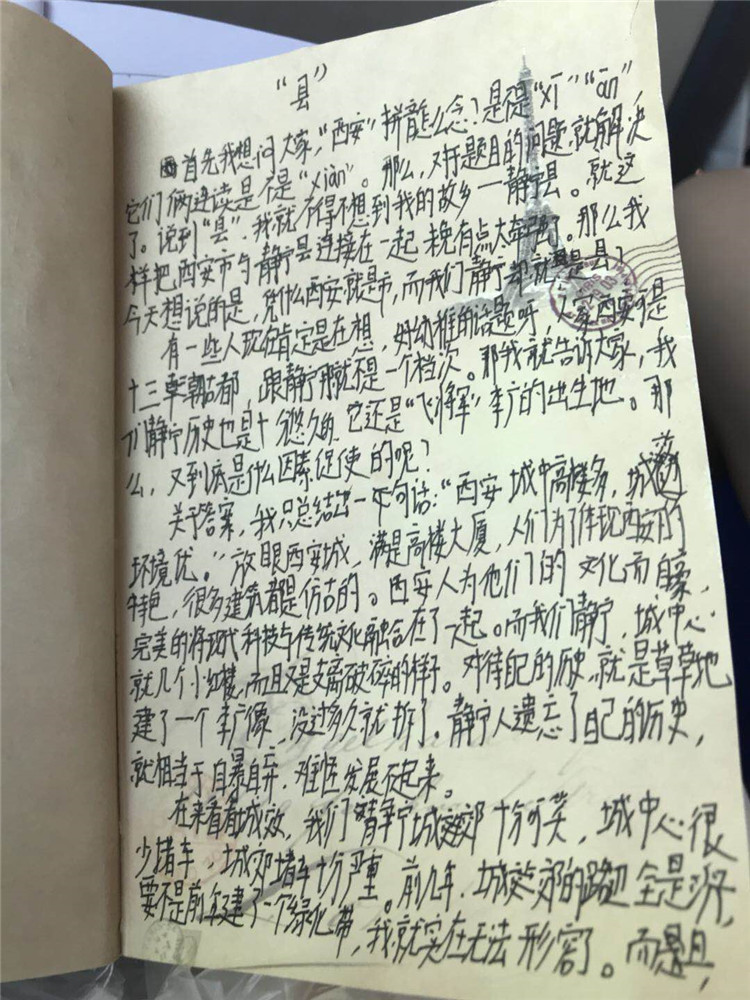 “县”
首先我想问大家，“西安”拼音怎么念？是不是“xī”“ān”，
它们俩连读是不是“xiàn”。那么，对于题目的问题，就解决
了。说到“县”，我就不得不想到我的故乡—静宁县。就这
样把西安市与静宁县连接在一起 稍有点大牵强了。那么我
今天想说的是，凭什么西安就是市，而我们静宁却就是县？
有一些人现在肯定是在想，好幼稚的话题呀，人家西安可是
十三朝古都，跟静宁那就不是一个档次。那我就告诉大家，我
们静宁历史也是十分悠久的 它还是“飞将军”李广的出生地。那
么，又到底是什么因素促使的呢？
关于答案，我只总结出一下句话：“西安 城中高楼多，城郊
环境优。”放眼西安城，满是高楼大厦，人们为了体现西安的
特色，很多建筑都是仿古的。西安人为他们的文化而自豪，
完美的将现代科技与传统文化融合在了一起。而我们静宁，城中心
就几个小红楼，而且又是支离破碎的样子。对待自己的历史，就是草草地
建了一个李广像，没过多久就拆了。静宁人遗忘了自己的历史，
就相当于自暴自弃，难怪发展不起来。
在来看看城效，我们静宁城郊十分可笑，城中心很
少堵车，城郊堵车十分严重。前几年，城郊的路边全是
要不是前年建了一个绿化带，我就实在无法形容了。而且，